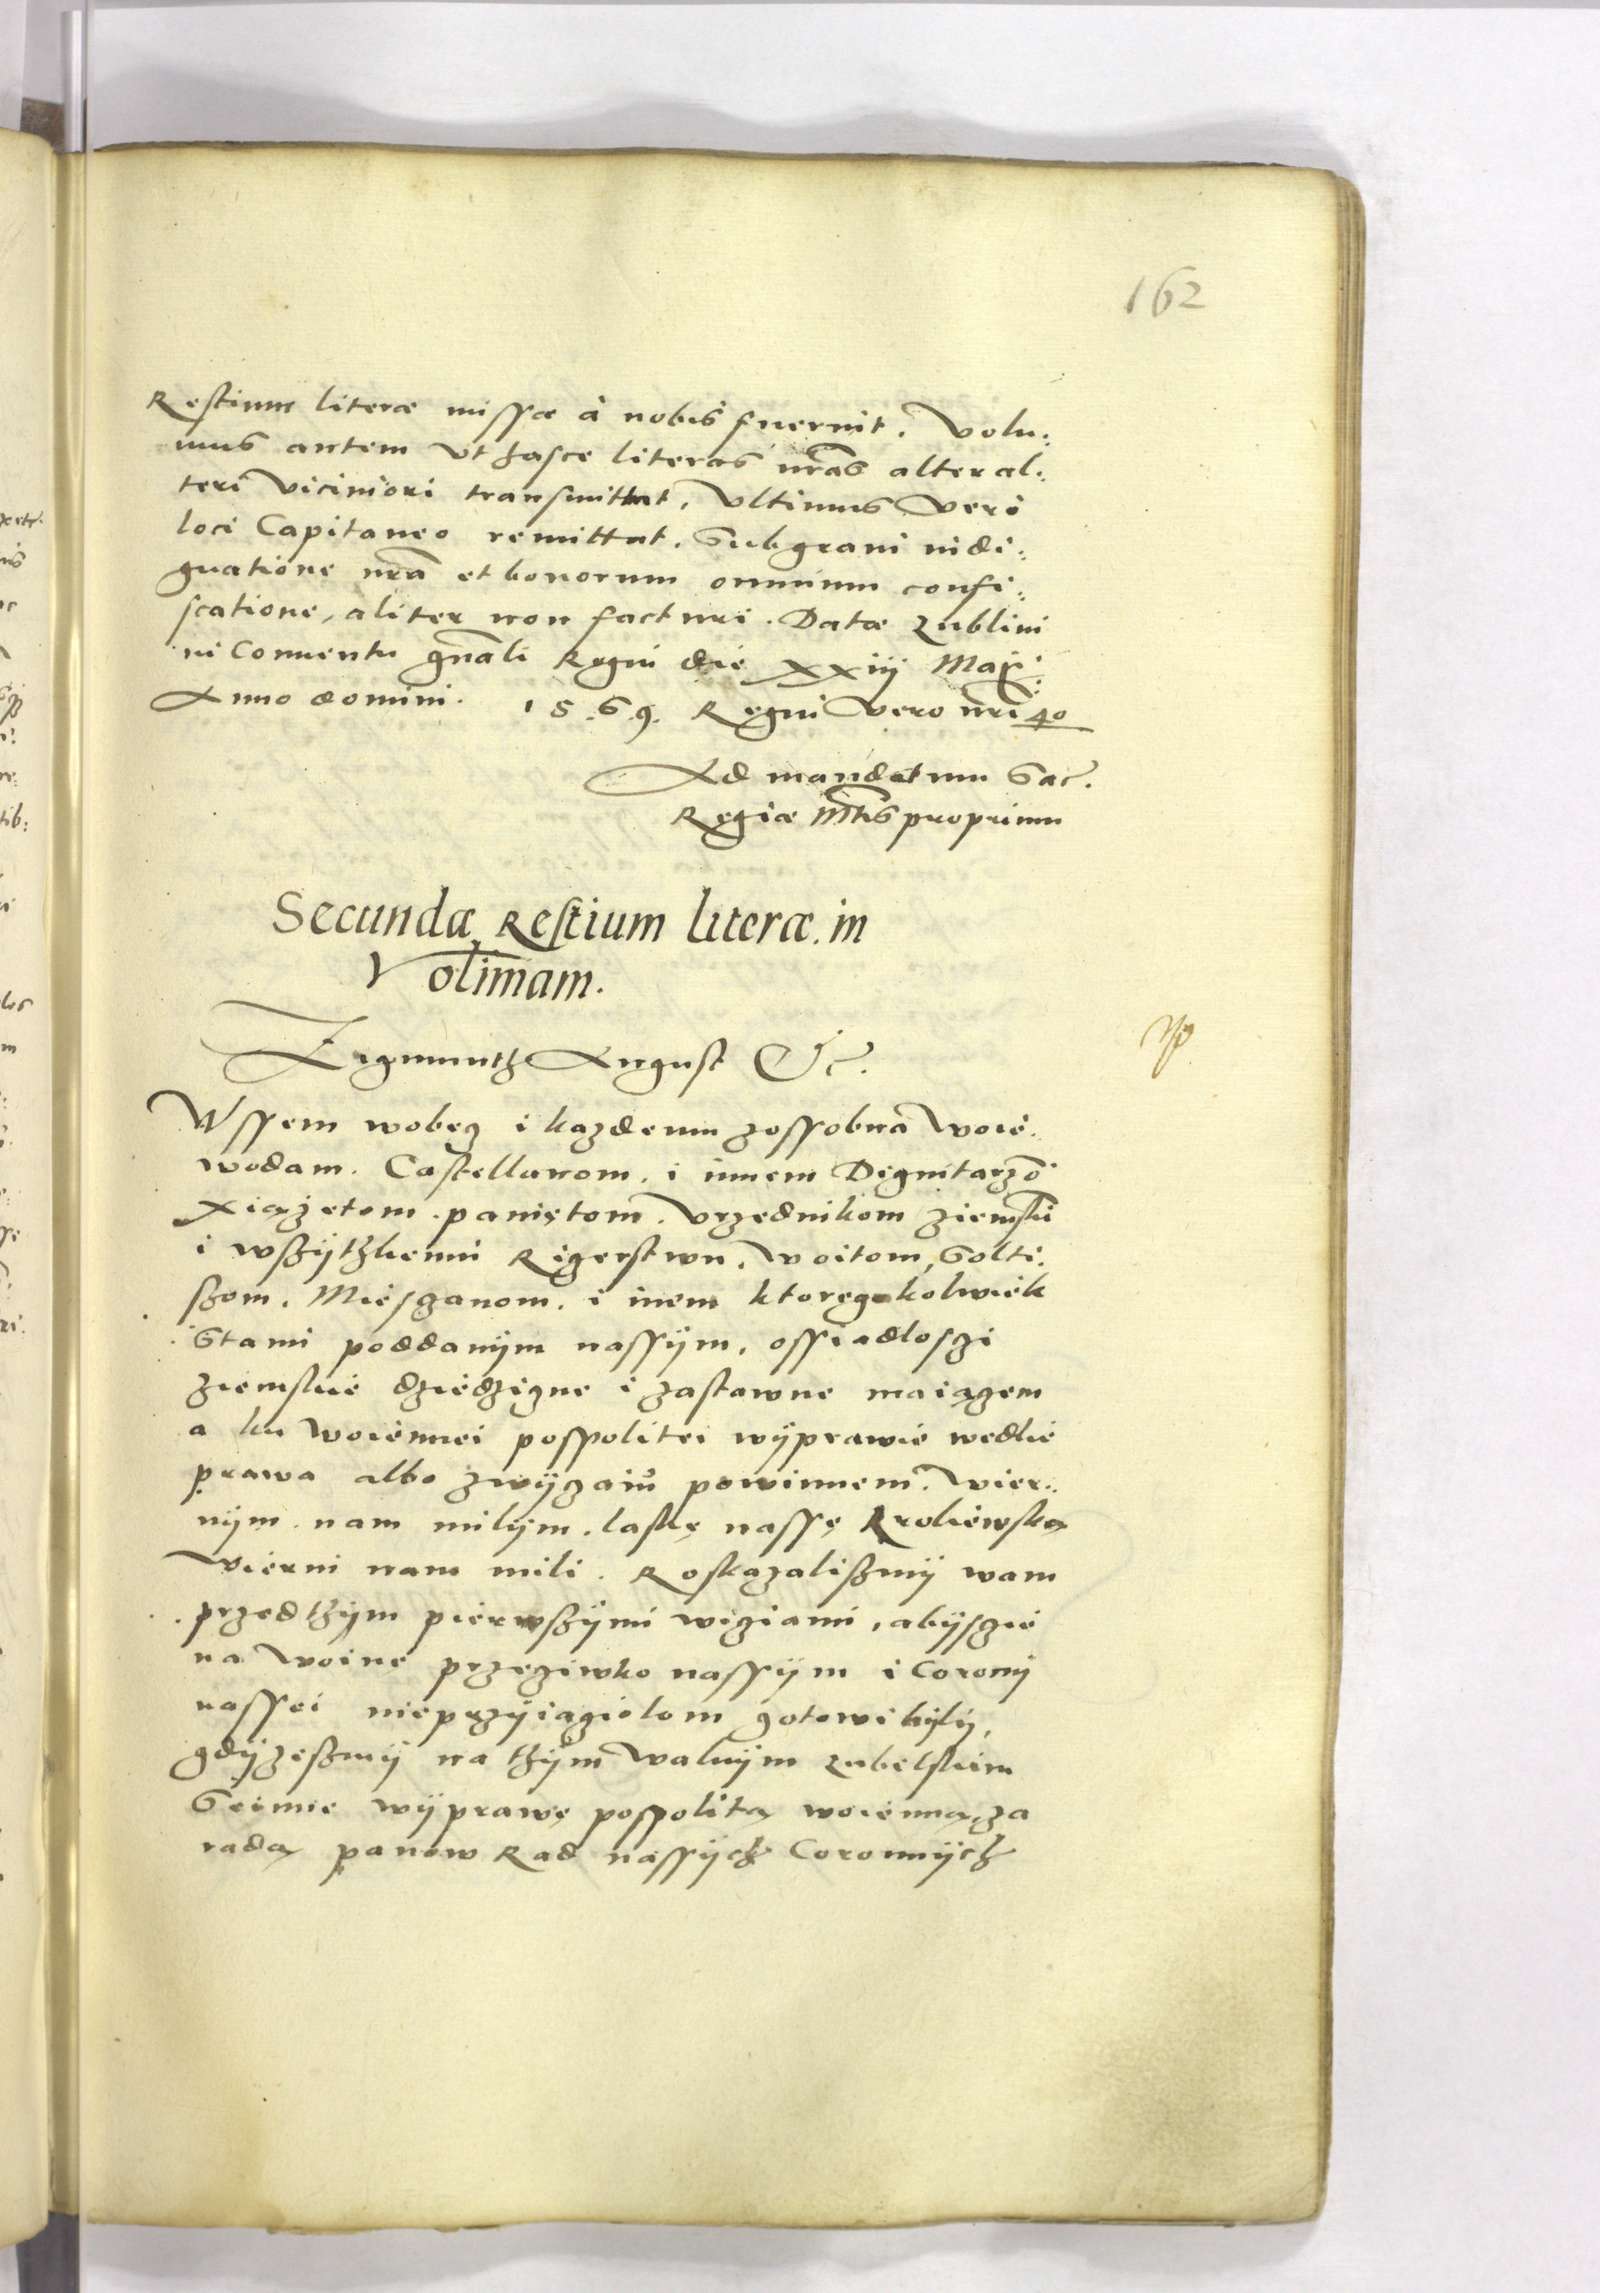 162
Restium literæ missæ à nobis fuerint. Volu:
mus autem Vt hasce literas nr̃as alter al:
teri Viciniori transmittat, Vltimus Vero
loci Capitaneo remittat. Sub graui indi:
gnatione nr̃a et bonorum omnium confi:
scatione, aliter non facturi. Datæ Lublini
in Conuentu gñali Regni die XXiij Maij:
Anno domini. 1.5.6.9. Regni Vero nr̃i 40
Ad mandatum Sac.
Regiæ Mtis proprium
Secundæ Restium literæ in
Volimam.
Zigmunth August &c.
Wssem wobecz i kazdemu zossobna Woie:
wodam. Castellanom. i innem Dignitarzo
Xiążętom. paniętom. Vrzednikom ziemski
i wszÿtzkiemu Ricerstwu. Woitom, Solti:
szom. Miesczanom. i inem ktoregokolwiek
Stanu poddanÿm nassÿm, ossiadlosczi
ziemskie dziedziczne i zastawne maiączem
a ku Woiennei pospolitei wÿprawie wedlie
prawa albo zwÿczaiu powinnem. Wier:
nÿm nam milÿm. laskę nassę Kroliewską
Wierni nam mili. Roskazaliszmÿ wam
przed thÿm pierwszÿmi wiciami, abÿsczie
na Woinę przeciwko nassÿm i Coronÿ
nassei nieprzÿiacziolom gotowi bÿlÿ,
gdÿzeszmÿ na thÿm Walnÿm Lubelskim
Seimie wÿprawę pospolitą woienną, za
radą panow Rad nassÿch Coronnÿch